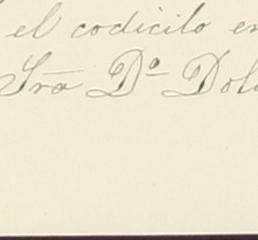 el codicilo en
Sra Dª Dol